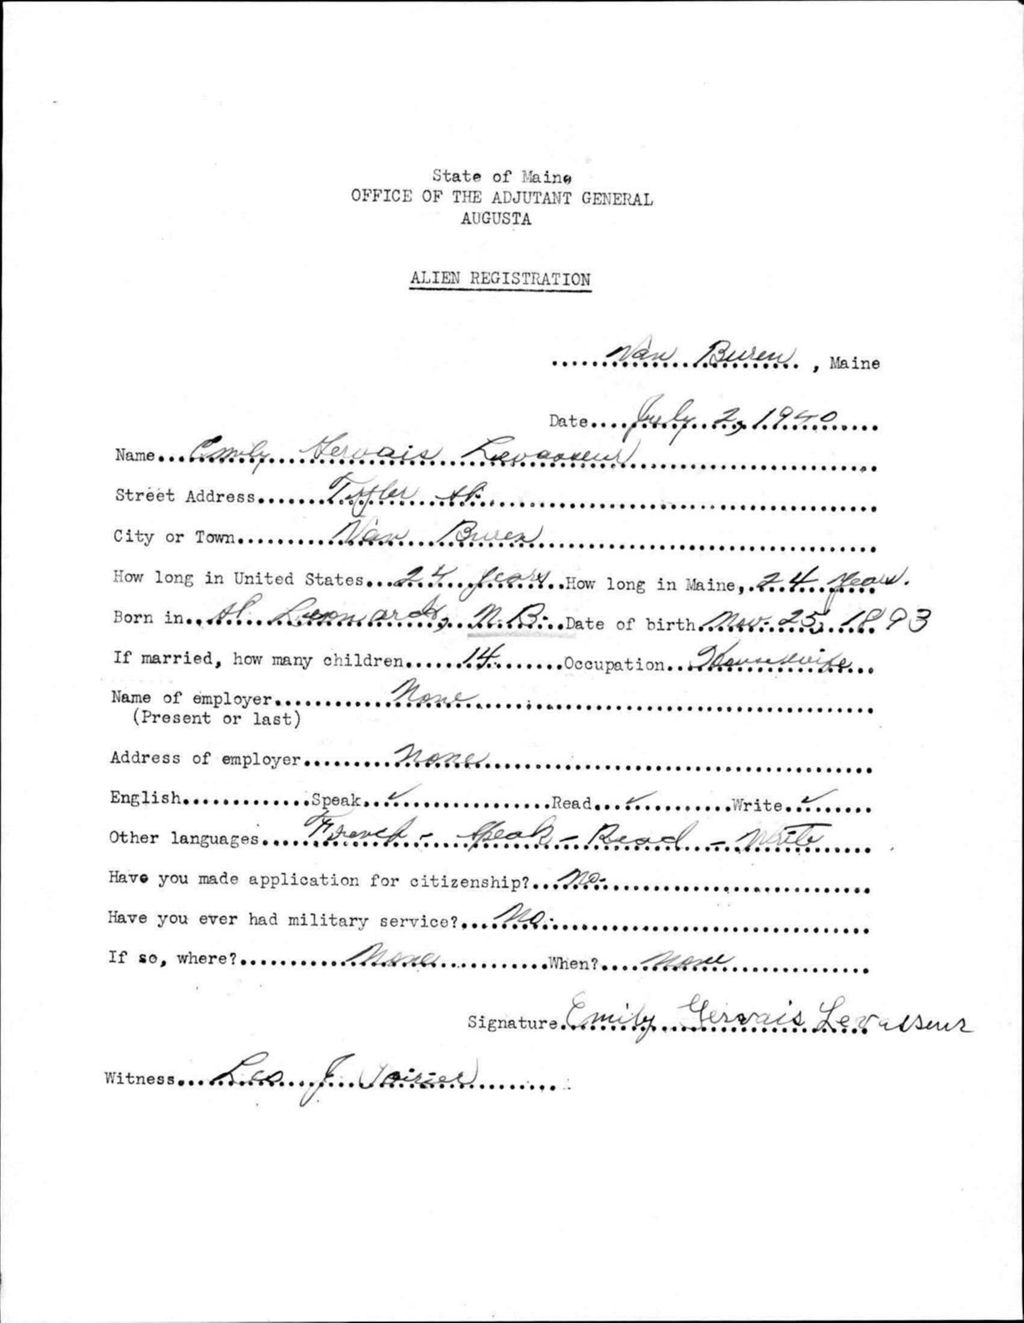 State of Maine
OFFICE OF THE ADJUTANT GENERAL
AUGUSTA
ALIEN REGISTRATION
Van Buren, Maine
Date July 2, 1940
Name Emily Gervais Levasseur
Street Address St.
City or Town Van Buren
How long in United States 24 years How long in Maine, 24 years.
Born in St. Leonards, N.B. Date of birth Nov. 25, 1893
If married, how many children 14 Occupation Housewife
Name of employer None
(Present or last)
Address of employer None
English Speak ✓ Read ✓ Write ✓
Other languages French - Speak - Read - Write
Have you made application for citizenship? No.
Have you ever had military service? No.
If so, where? None When? None
Signature Emily Gervais Levasseur
Witness Leo J. Poirier